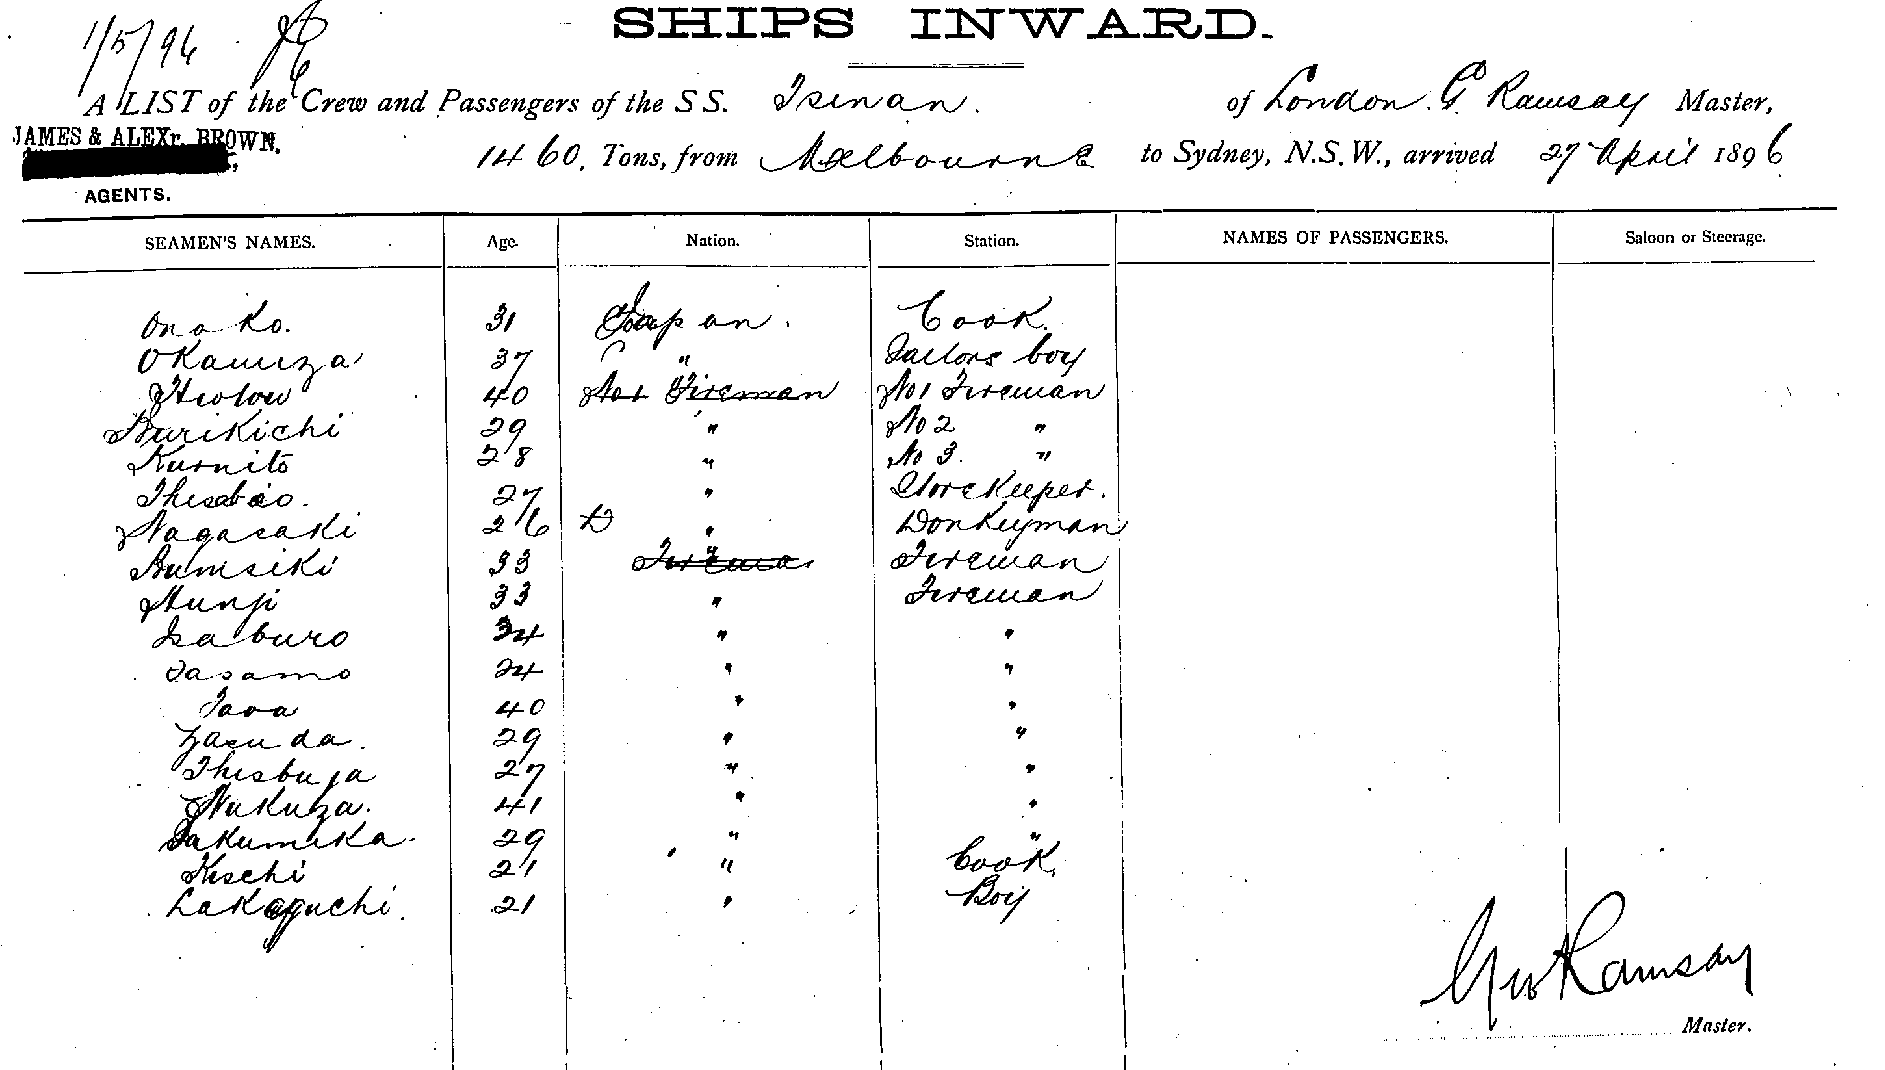 SHIPS INWARD.
1/5/96
A LIST of the Crew and Passengers of the SS. Tsinan. of London. G Ramsay Master,
JAMES & ALEXr. BROWN,
1460. Tons, from Melbourne to Sydney, N.S.W., arrived 27 April 1896
AGENTS.
SEAMEN'S NAMES. Age. Nation. Station. NAMES OF PASSENGERS. Saloon or Steerage.
Onoko. 31 Japan. Cook.
Okamuza 37 " Sailors boy
40 No 1 Fireman No 1 Fireman
Burikichi 29 " No 2 "
Kurnito 28 " No 3. "
27 " Storekeeper.
Nagasaki 26 D " Donkeyman
Bumsiki 33 " Fireman
Hunji 33 " Fireman
Isaburo 34 " "
Sasamo 24 " "
40 " "
Yasuda. 29 " "
Thisbuja 27 " "
Nukuza. 41 " "
Sakumika. 29 " "
Kischi 21 " Cook.
Lakaguchi. 21 " Boy
Geo Ramsay
Master.